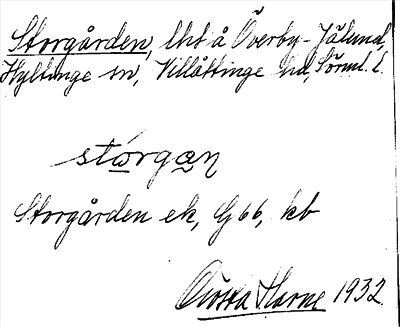 Storgården, lht å Överby-Jälund,
Hyltinge sn, Villåttinge hd, Sörml. l.
stơrgan
Storgården ek, G 66, kb
Gösta Harne 1932